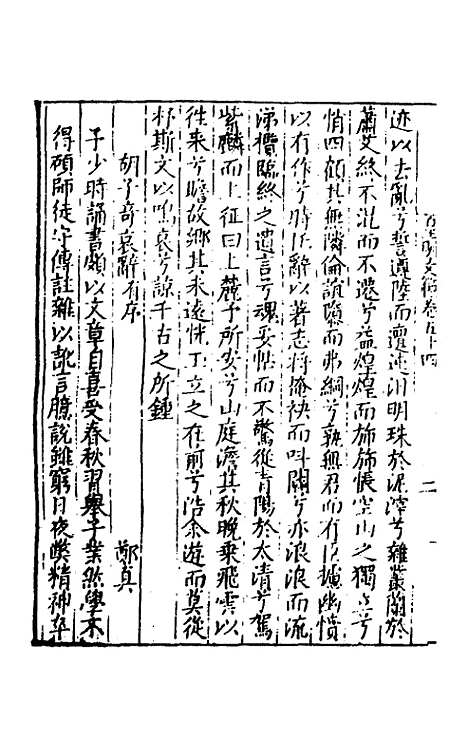 迹以去亂兮誓遵陸而遭迍汨明珠於泥滓兮雜叢蘭於
蕭艾終不混而不還兮益煌煌而旆旆悵空山之獨立兮
悄四顧其無隣倫詭隱而弗綱兮孰無君而有臣攄幽憤
以有作兮時正辭以著志將掩袂而叫閽兮亦浪浪而流
涕攬臨終之遺言兮魂妥怗而不驚從青陽於太清兮駕
紫麟而上征曰上麓予所安兮山庭澹其秋晚乘飛雲以
徃来兮瞻故鄉其未遠恍丁立之在前兮浩余遊而莫從
抒斯文以鳴哀兮諒千古之所鍾
胡子奇哀辭有序
鄭真
予少時誦書頗以文章自喜受春秋習舉子業然學未
得碩師徒守傳註雜以訛言臆說雖窮日夜嘐精神卒
皇明文衡卷五十四
二